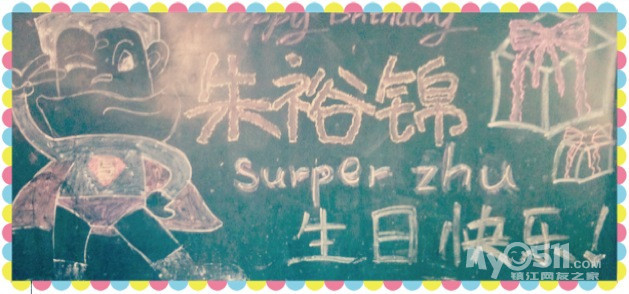 Happy Birthday
朱裕锦
surper zhu
生日快乐!
My0511.com
镇江网友之家